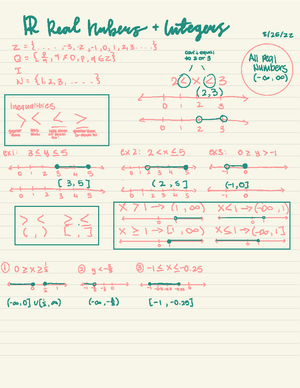 ℝ Real Numbers + Integers
8/26/22
Z = {. . . -3, -2, -1, 0, 1, 2, 3, ...}
Q = {p/q, q ≠ 0, p, q ∈ Z}
I
N = {1, 2, 3, . . . . . }
can't equal
to 2 or 3
2 < x < 3
(2, 3)
0 1 2 3
0 1 2 3
All Real
Numbers
(-∞, ∞)
Inequalities
> < ≥ ≤
ex1: 3 ≤ y ≤ 5
0 1 2 3 4 5
[3, 5]
ex 2: 2 < x ≤ 5
0 1 2 3 4 5
(2, 5]
ex3: 0 ≥ y > -1
-1 0 1
(-1, 0]
> <
( , )
≥ ≤
[ , ]
x > 1 → (1, ∞)
x < 1 → (-∞, 1)
x ≥ 1 → [1, ∞)
x ≤ 1 → (-∞, 1]
① 0 ≥ x ≥ 1/2
0 1/2 1
(-∞, 0] ∪ [1/2, ∞)
② y <
-1 0
③ -1 ≤ x ≤ -0.25
[-1, -0.25]